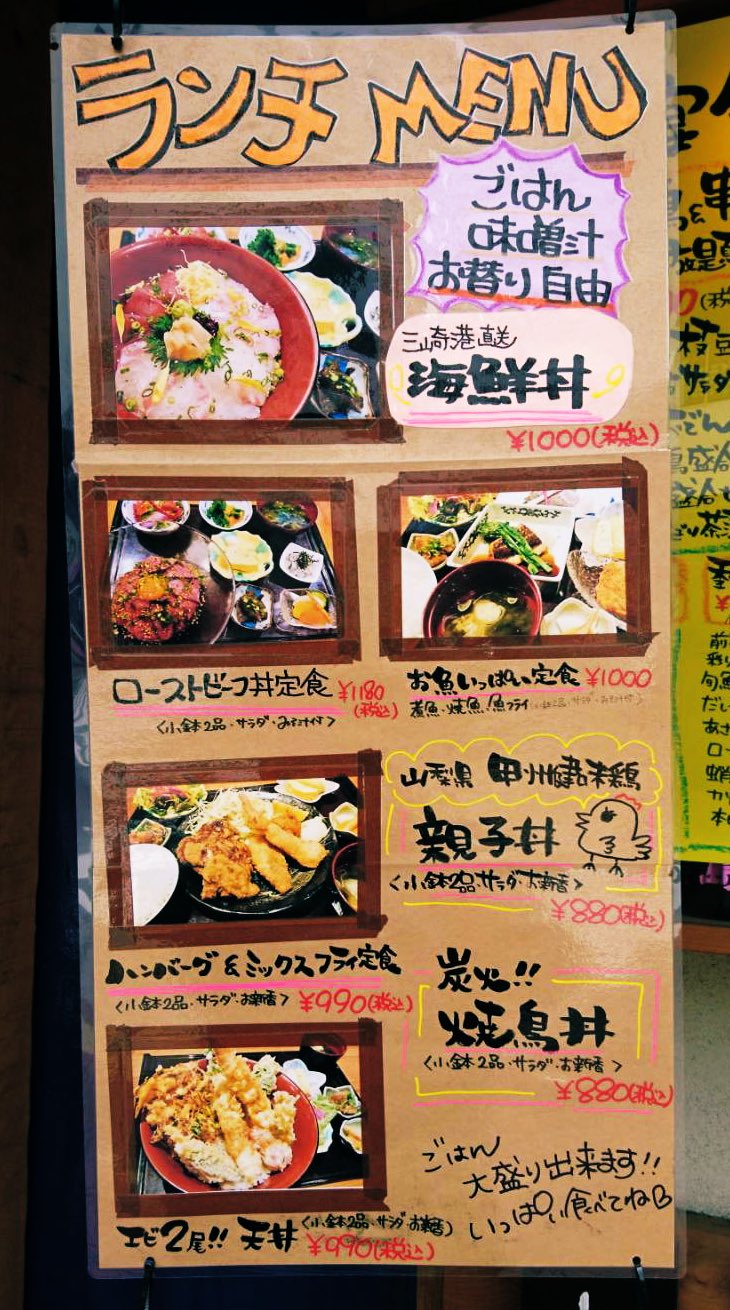 ランチ MENU
ごはん
味噌汁
お替り自由
三崎港直送
海鮮丼
¥1000(税込)
ローストビーフ丼定食 ¥1180
(税込)
<小鉢2品・サラダ・みそ汁付>
お魚いっぱい定食 ¥1000
煮魚・焼魚・魚フライ
山梨県 甲州健味鶏
親子丼
<小鉢2品・サラダ・お新香>
¥880(税込)
ハンバーグ&ミックスフライ定食
<小鉢2品・サラダ・お新香> ¥990(税込)
炭火!!
焼鳥丼
<小鉢2品・サラダ・お新香>
¥880(税込)
エビ2尾!! 天丼 <小鉢2品・サラダ・お新香>
¥990(税込)
ごはん
大盛り出来ます!!
いっぱい食べてね